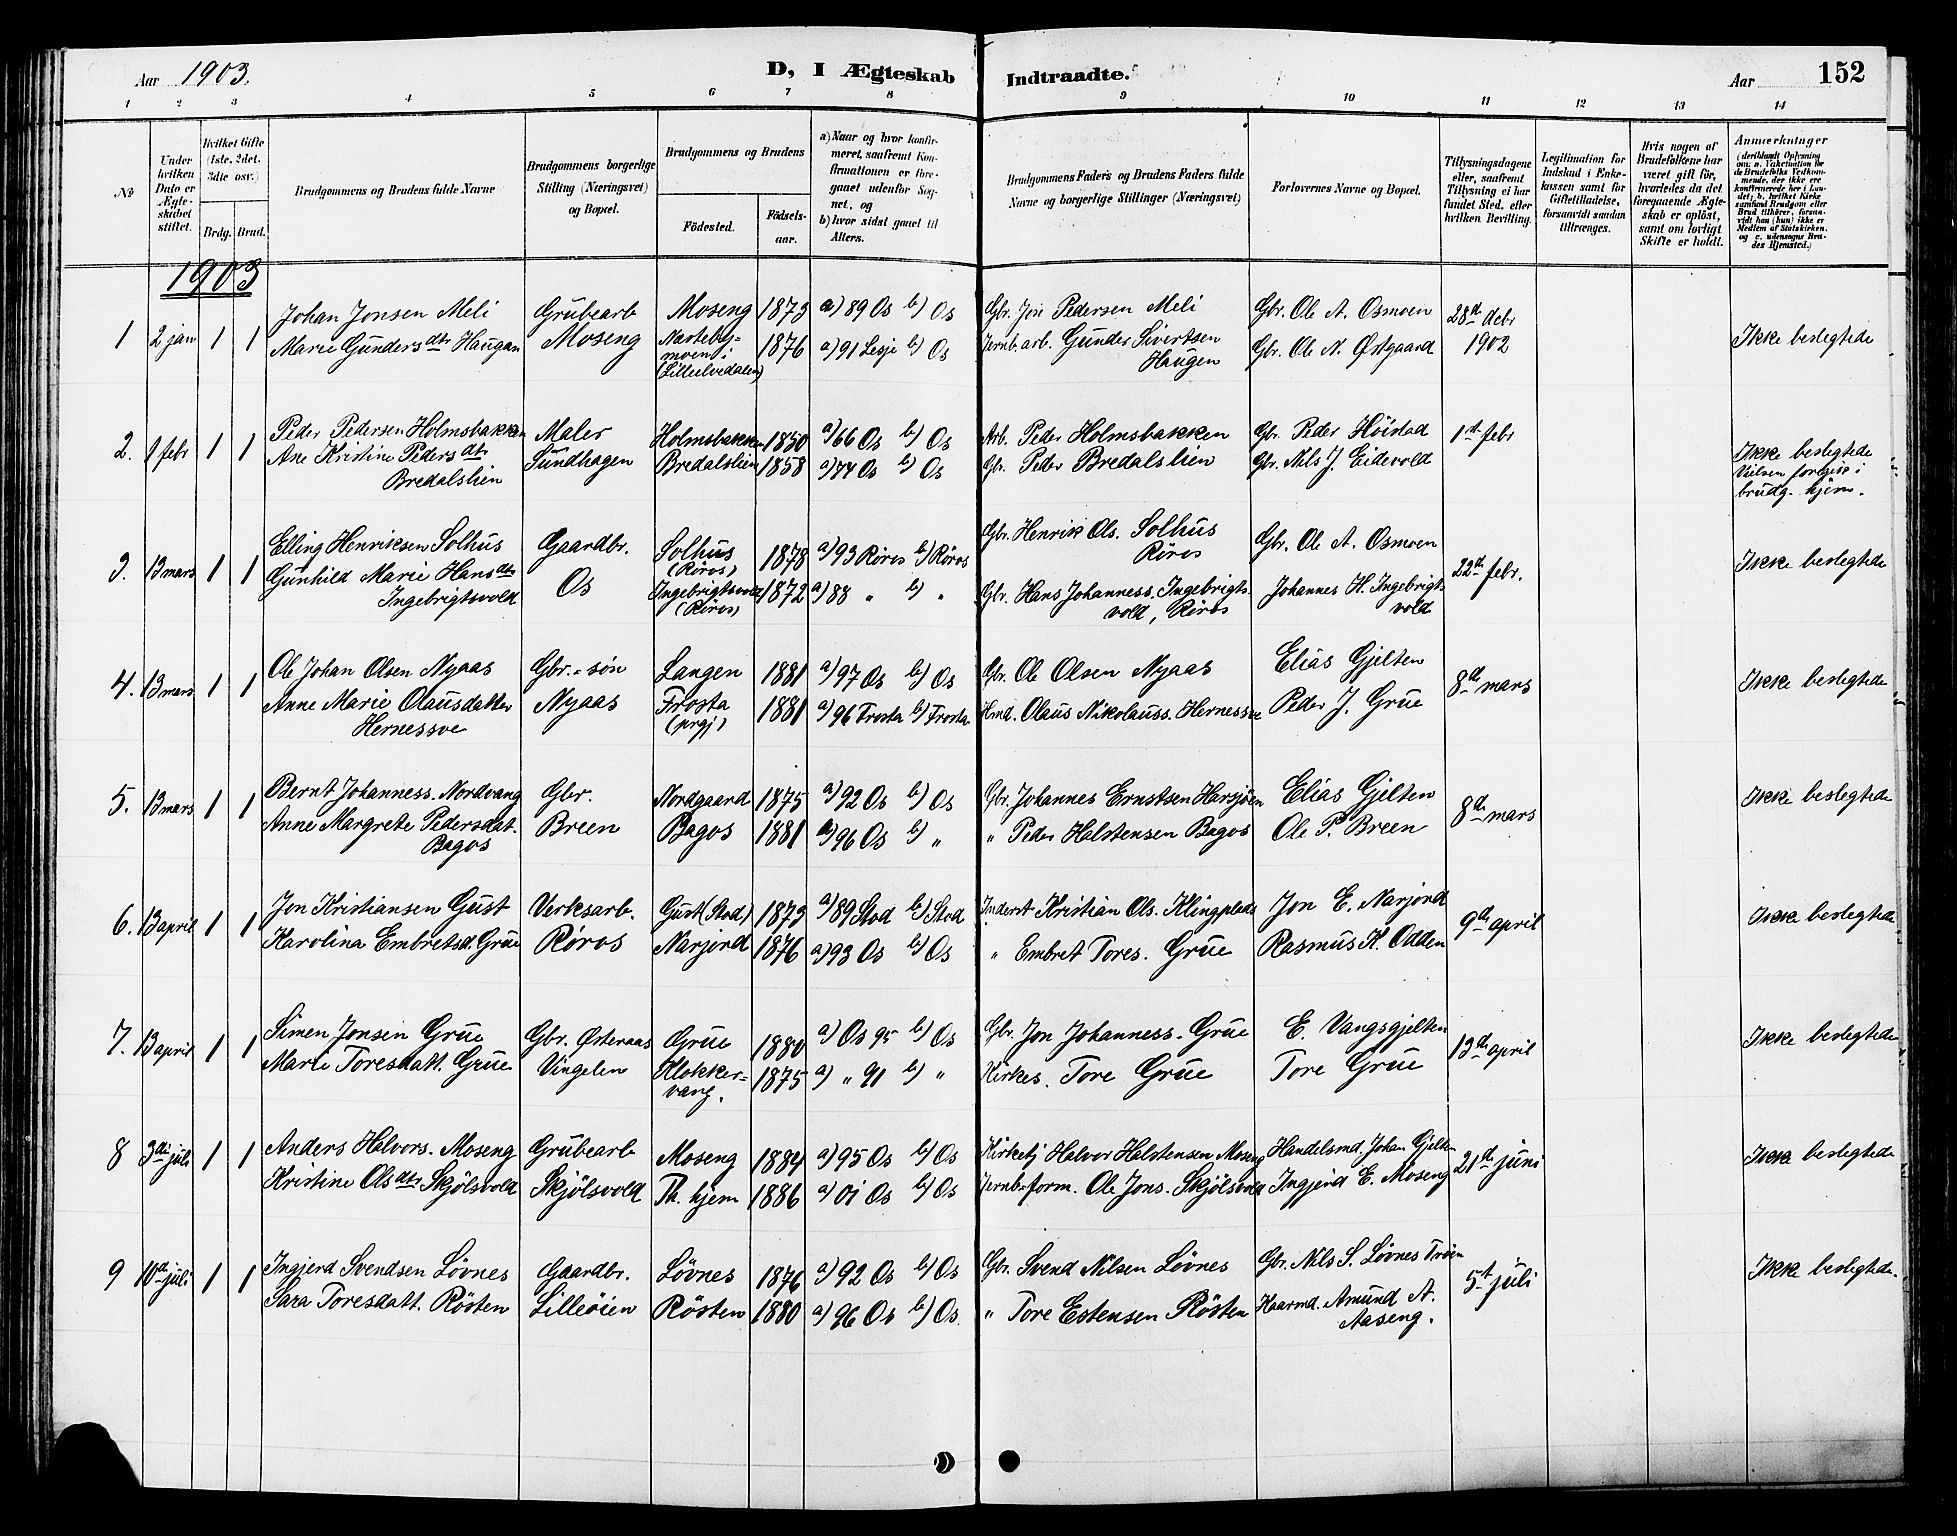 Aar 1903.
D, I Ægteskab Indtraadte.
Aar 152
1 2 3 4 5 6 7 8 9 10 11 12 13 14
No
Under hvilken Dato er Ægteskabet stiftet.
Hvilket Gifte (1ste, 2det, 3die osv.)
Brdg. Brud.
Brudgommens og Brudens fulde Navne
Brudgommens borgerlige Stilling (Næringsvei) og Bopæl.
Brudgommens og Brudens
Fødested.
Fødselsaar.
a) Naar og hvor konfirmeret, saafremt Konfirmationen er foregaaet udenfor Sognet, og
b) hvor sidst gaaet til Alters.
Brudgommens Faders og Brudens Faders fulde Navne og borgerlige Stillinger (Næringsvei)
Forlovernes Navne og Bopæl.
Tillysningsdagene eller, saafremt Tillysning ei har fundet Sted, efter hvilken Bevilling.
Legitimation for Indskud i Enkekassen samt for Giftetilladelse, forsaavidt saadan tiltrænges.
Hvis nogen af Brudefolkene har været gift før, hvorledes da det foregaaende Ægteskab er opløst, samt om lovligt Skifte er holdt.
Anmærkninger
(deriblandt Oplysning om: a. Vakcination for de Brudefolks Vedkommende, der ikke ere konfirmerede her i Landet; b. hvilket Kirkesamfund Brudgom eller Brud tilhører, forsaavidt han (hun) ikke er Medlem af Statskirken, og c. udensogns Brudes Hjemsted.)
1903
1 2 jan 1 1 Johan Jonsen Meli Grubearb Moseng 1873 a) 89 Os b) Os Gbr. Jon Pedersen Meli Gbr. Ole A. Osmoen 28d debr
Marie Gundersdtr Haugan Moseng 1876 a) 91 Lesje b) Os Jernb.arb. Gunder Sivertsen Haugen Gbr. Ole N. Østgaard 1902 Ikke beslegtede
moen i
(Lilleelvedalen)
2. 1 febr 1 1 Peder Pedersen Holmsbakken Maler Holmsbakken 1850 a) 66 Os b) Os Arb. Peder Holmsbakken Gbr. Peder Høistad 1st febr
Ane Kristine Pedersdtr Sundhagen Bredalslien 1858 a) 74 Os b) Os Gbr. Peder Bredalslien Gbr. Nils J. Eidevold Ikke beslegtede
Bredalslien Vielsen foregik i
brudg. hjem.
3. 13 mars 1 1 Elling Henriksen Solhus Gaardbr. Solhus (Røros) 1878 a) 93 Røros b) Røros Gbr. Henrik Ols. Solhus Røros Gbr. Ole A. Osmoen 22th febr. Ikke beslegtede
Gunhild Marie Hansdtr Os Ingebrigtsvold (Røros) 1872 a) 88 " b) " Gbr. Hans Johanness. Ingebrigtsvold, Røros Johannes H. Ingebrigtsvold
Ingebrigtsvold
4. 13 mars 1 1 Ole Johan Olsen Nyaas Gbr.-søn Langen 1881 a) 97 Os b) Os Gbr. Ole Olsen Nyaas Elias Gjelten 8d mars Ikke beslegtede
Anne Marie Olausdatter Nyaas Frosta (prgj) 1881 a) 96 Frosta b) Frosta Hmd. Olaus Nikolauss. Hernessve Peder J. Grue
Hernessve
5. 13 mars 1 1 Bernt Johanness. Nordvang Gbr. Nordgaard 1875 a) 92 Os b) Os Gbr. Johannes Ernstsen Harsjøen Elias Gjelten 8d mars Ikke beslegtede
Anne Margrete Pedersdat. Breen Bagos 1881 a) 96 Os b) " " Peder Halstensen Bagos Ole P. Breen
Bagos
6. 13 april 1 1 Jon Kristiansen Gust Verksarb. Gust (Stod) 1873 a) 89 Stod b) Stod Inderst Kristian Ols. Klingplads Jon E. Narjord 9d april Ikke beslegtede
Karolina Embretsd. Grue Røros Narjord 1876 a) 93 Os b) Os " Embret Tores. Grue Rasmus K. Odden
7. 13 april 1 1 Simen Jonsen Grue Gbr. Østeraas Grue 1880 a) Os 95 b) Os Gbr. Jon Johanness. Grue E. Vangsgjelten 13th april Ikke beslegtede
Marie Toresdatt. Grue Vingelen Klokkervang. 1875 a) " 91 b) " Kirkes. Tore Grue Tore Grue
8 3die juli 1 1 Anders Halvors. Moseng Grubearb Moseng 1884 a) 95 Os b) Os Kirketj Halvor Halstensen Moseng Handelsmd. Johan Gjelten 21st juni Ikke beslegtede
Kristine Olsdtr Skjølsvold Skjølsvold Th. hjem 1886 a) 01 Os b) Os Jernb-form. Ole Jons. Skjølsvold Ingjerd E. Moseng
9 10d juli 1 1 Ingjerd Svendsen Løvnes Gaardbr. Løvnes 1876 a) 92 Os b) Os Gbr. Svend Nilsen Løvnes Gbr. Nils S. Løvnes Trøen 5t juli Ikke beslegtede.
Sara Toresdatt. Røsten Lilleøien Røsten 1880 a) 96 Os b) Os. " Tore Estensen Røsten Haarmd. Amund A. Aaseng.